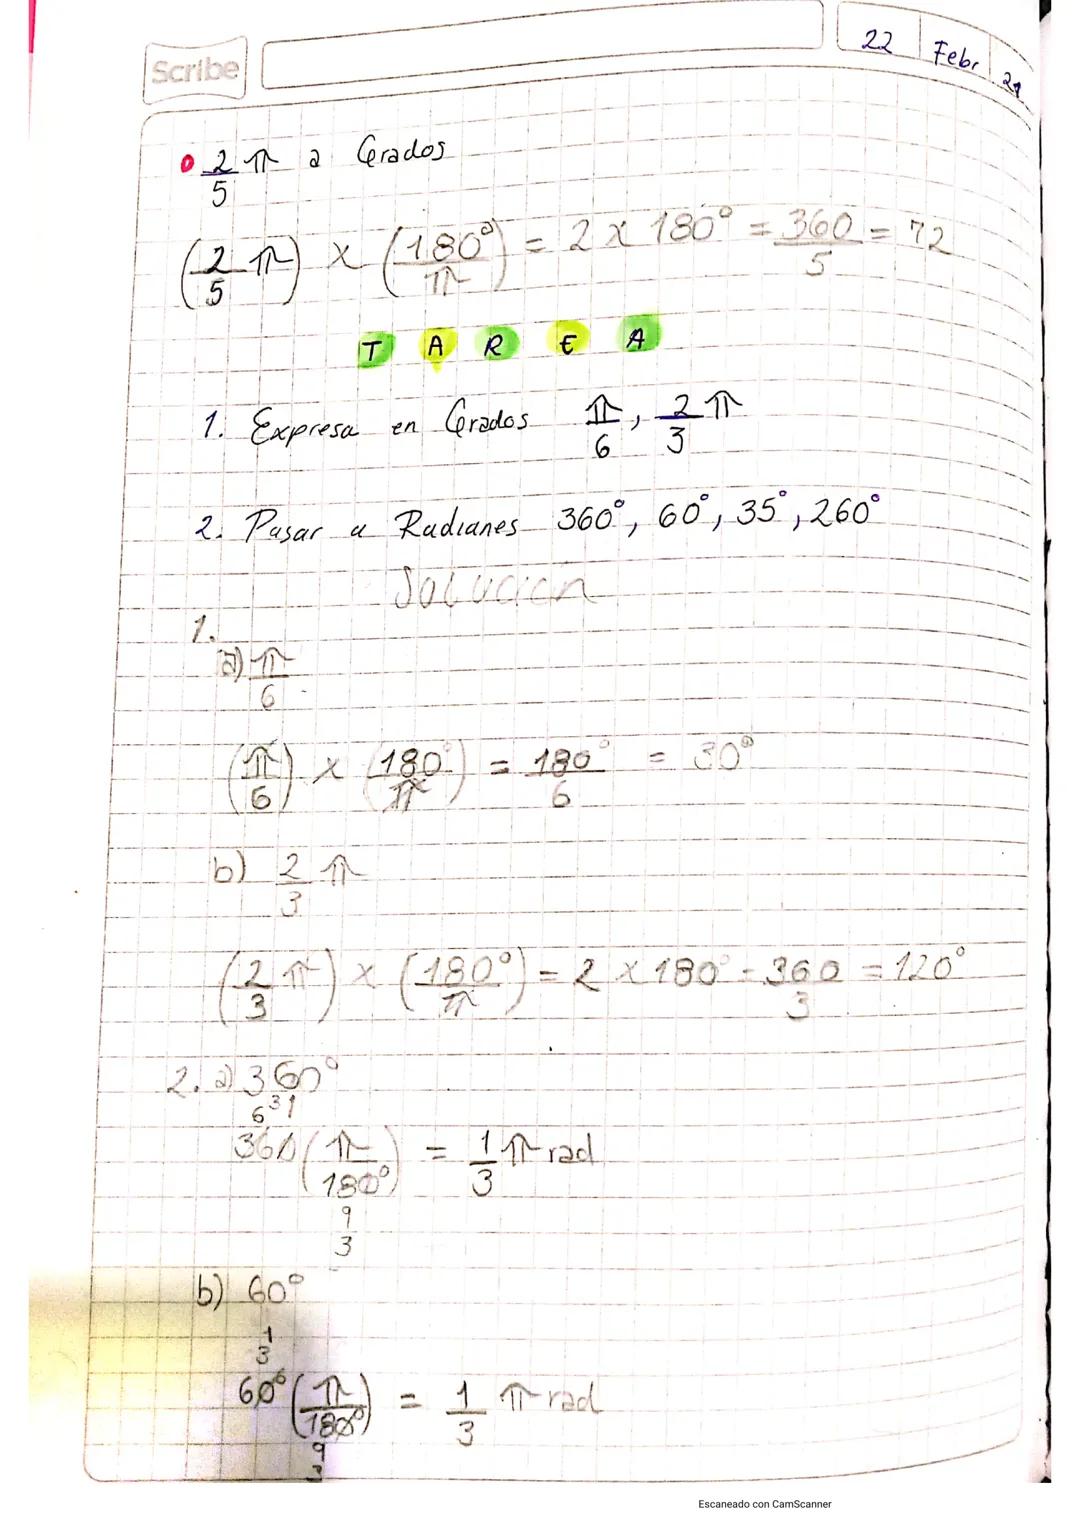 Scribe
22 Febr 21
2/5 π a Grados
(2/5 π) x (180°/π) = 2 x 180° = 360/5 = 72
TAREA
1. Expresa en Grados π/6, 2/3 π
2. Pasar a Radianes 360°, 60°, 35°, 260°
Solución
1.
a) π/6
(π/6) x (180°/π) = 180°/6 = 30°
b) 2/3 π
(2/3 π) x (180°/π) = 2 x 180° = 360/3 = 120°
2. a) 360°
6 3 1
360 (π/180°) = 1/3 π rad
9
3
b) 60°
1
3
60° (π/180°) = 1/3 π rad
9
3
Escaneado con CamScanner